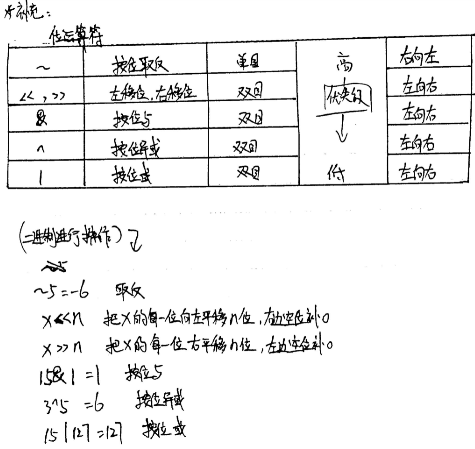 补充:
位运算符
~ 按位取反 单目 高 右向左
<<,>> 左移位,右移位 双目 优先级 左向右
& 按位与 双目 左向右
^ 按位异或 双目 左向右
| 按位或 双目 低 左向右
(二进制进行操作)
~5=-6 取反
x<<n 把X的每一位向左平移n位,右边空位补0
x>>n 把X的每一位右平移n位,左边空位补0
15&1=1 按位与
3^5=6 按位异或
15|127=127 按位或